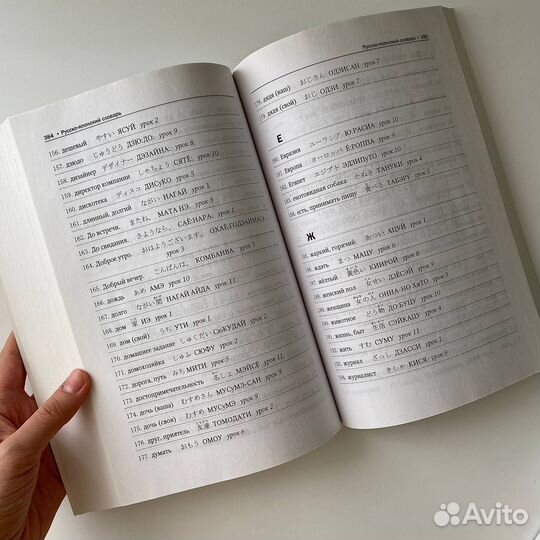 384 • Русско-японский словарь
156. дешевый やすい ЯСУЙ урок 2
157. дзюдо じゅうどう ДЗЮ:ДО: урок 9
158. дизайнер デザイナー ДЗАЙНА: урок 8
159. директор компании しゃちょう СЯТЁ: урок 10
160. дискотека ディスコ ДИСуКО урок 9
161. длинный, долгий ながい НАГАЙ урок 5
162. До встречи. またね。 МАТА НЭ. урок 1
163. До свидания. さようなら。 САЁ:НАРА. урок 3
164. Доброе утро. おはようございます。 ОХАЁ:ГОДЗАЙМАСу.
урок 3
165. Добрый вечер. こんばんは。 КОМБАНВА. урок 3
166. дождь あめ АМЭ урок 2
167. долго ながい間 НАГАЙ АЙДА урок 11
168. дом 家 ИЭ урок 9
169. дом (свой) うち УТИ урок 1
170. домашнее задание しゅくだい СЮКУДАЙ урок 2
171. домохозяйка しゅふ СЮФУ урок 2
172. дорога, путь みち МИТИ урок 5
173. достопримечательность 名しょ МЭЙСЁ урок 11
174. дочь (ваша) むすめさん МУСуМЭ-САН урок 9
175. дочь (своя) むすめ МУСуМЭ урок 9
176. друг, приятель 友達 ТОМОДАТИ урок 2
177. думать おもう ОМОУ урок 6
Русско-японский словарь • 385
178. дядя (ваш) おじさん ОДЗИСАН урок 7
179. дядя (свой) おじ ОДЗИ урок 7
Е
180. Евразия ユーラシア Ю:РАСИА урок 10
урок 10
182. Египет エジプト ЭДЗИПУТО урок 10
183. енотовидная собака たぬき ТАНУКИ урок 4
184. есть, принимать пищу 食べる ТАБЭРУ урок 5
Ж
жаркий, горячий あつい АЦУЙ урок 1
ждать まつ МАЦУ урок 6
жёлтый 黄色い КИИРОЙ урок 11
женский пол 女せい ДЗЁСЭЙ урок 9
женщина 女の人 ОННА-НО ХиТО урок 2
животное どう物 ДО:БУЦУ урок 2
жизнь, быт 生活 СЭЙКАЦУ урок 9
жить すむ СУМУ урок 4
журнал ざっし ДЗАССИ урок 1
194. журналист きしゃ КИСЯ урок 9
Avito